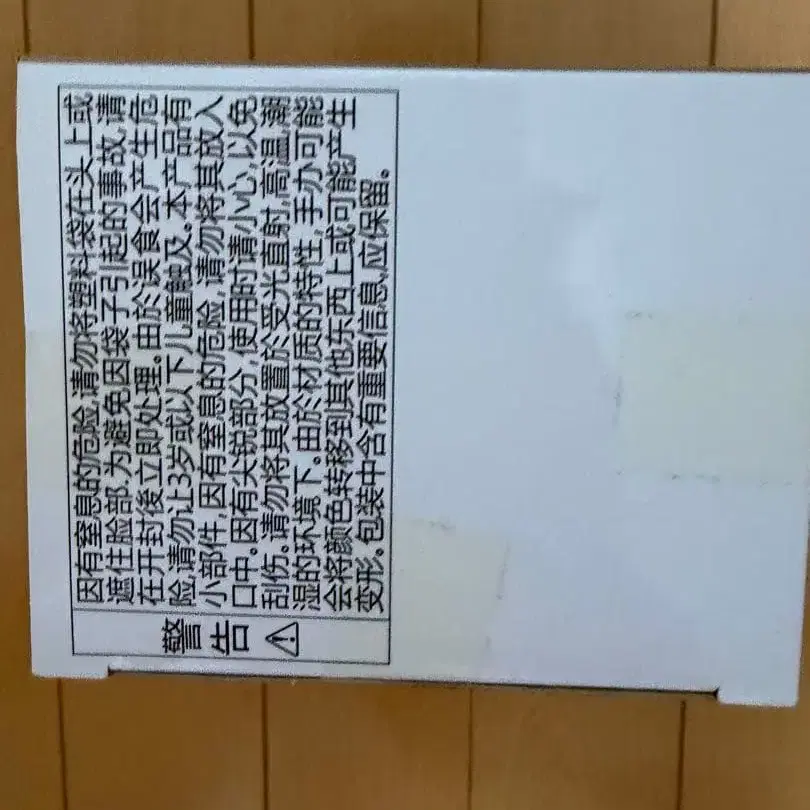 警告
因有窒息的危险,请勿将塑料袋在头上或
遮住脸部.为避免因袋子引起的事故,请
在开封後立即处理。由於误食会产生危
险,请勿让3岁或以下儿童触及。本产品有
小部件,因有窒息的危险,请勿将其放入
口中。因有尖锐部分,使用时请小心,以免
刮伤。请勿将其放置於受光直射,高温,潮
湿的环境下。由於材质的特性,手办可能
会将颜色转移到其他东西上或可能产生
变形。包装中含有重要信息,应保留。